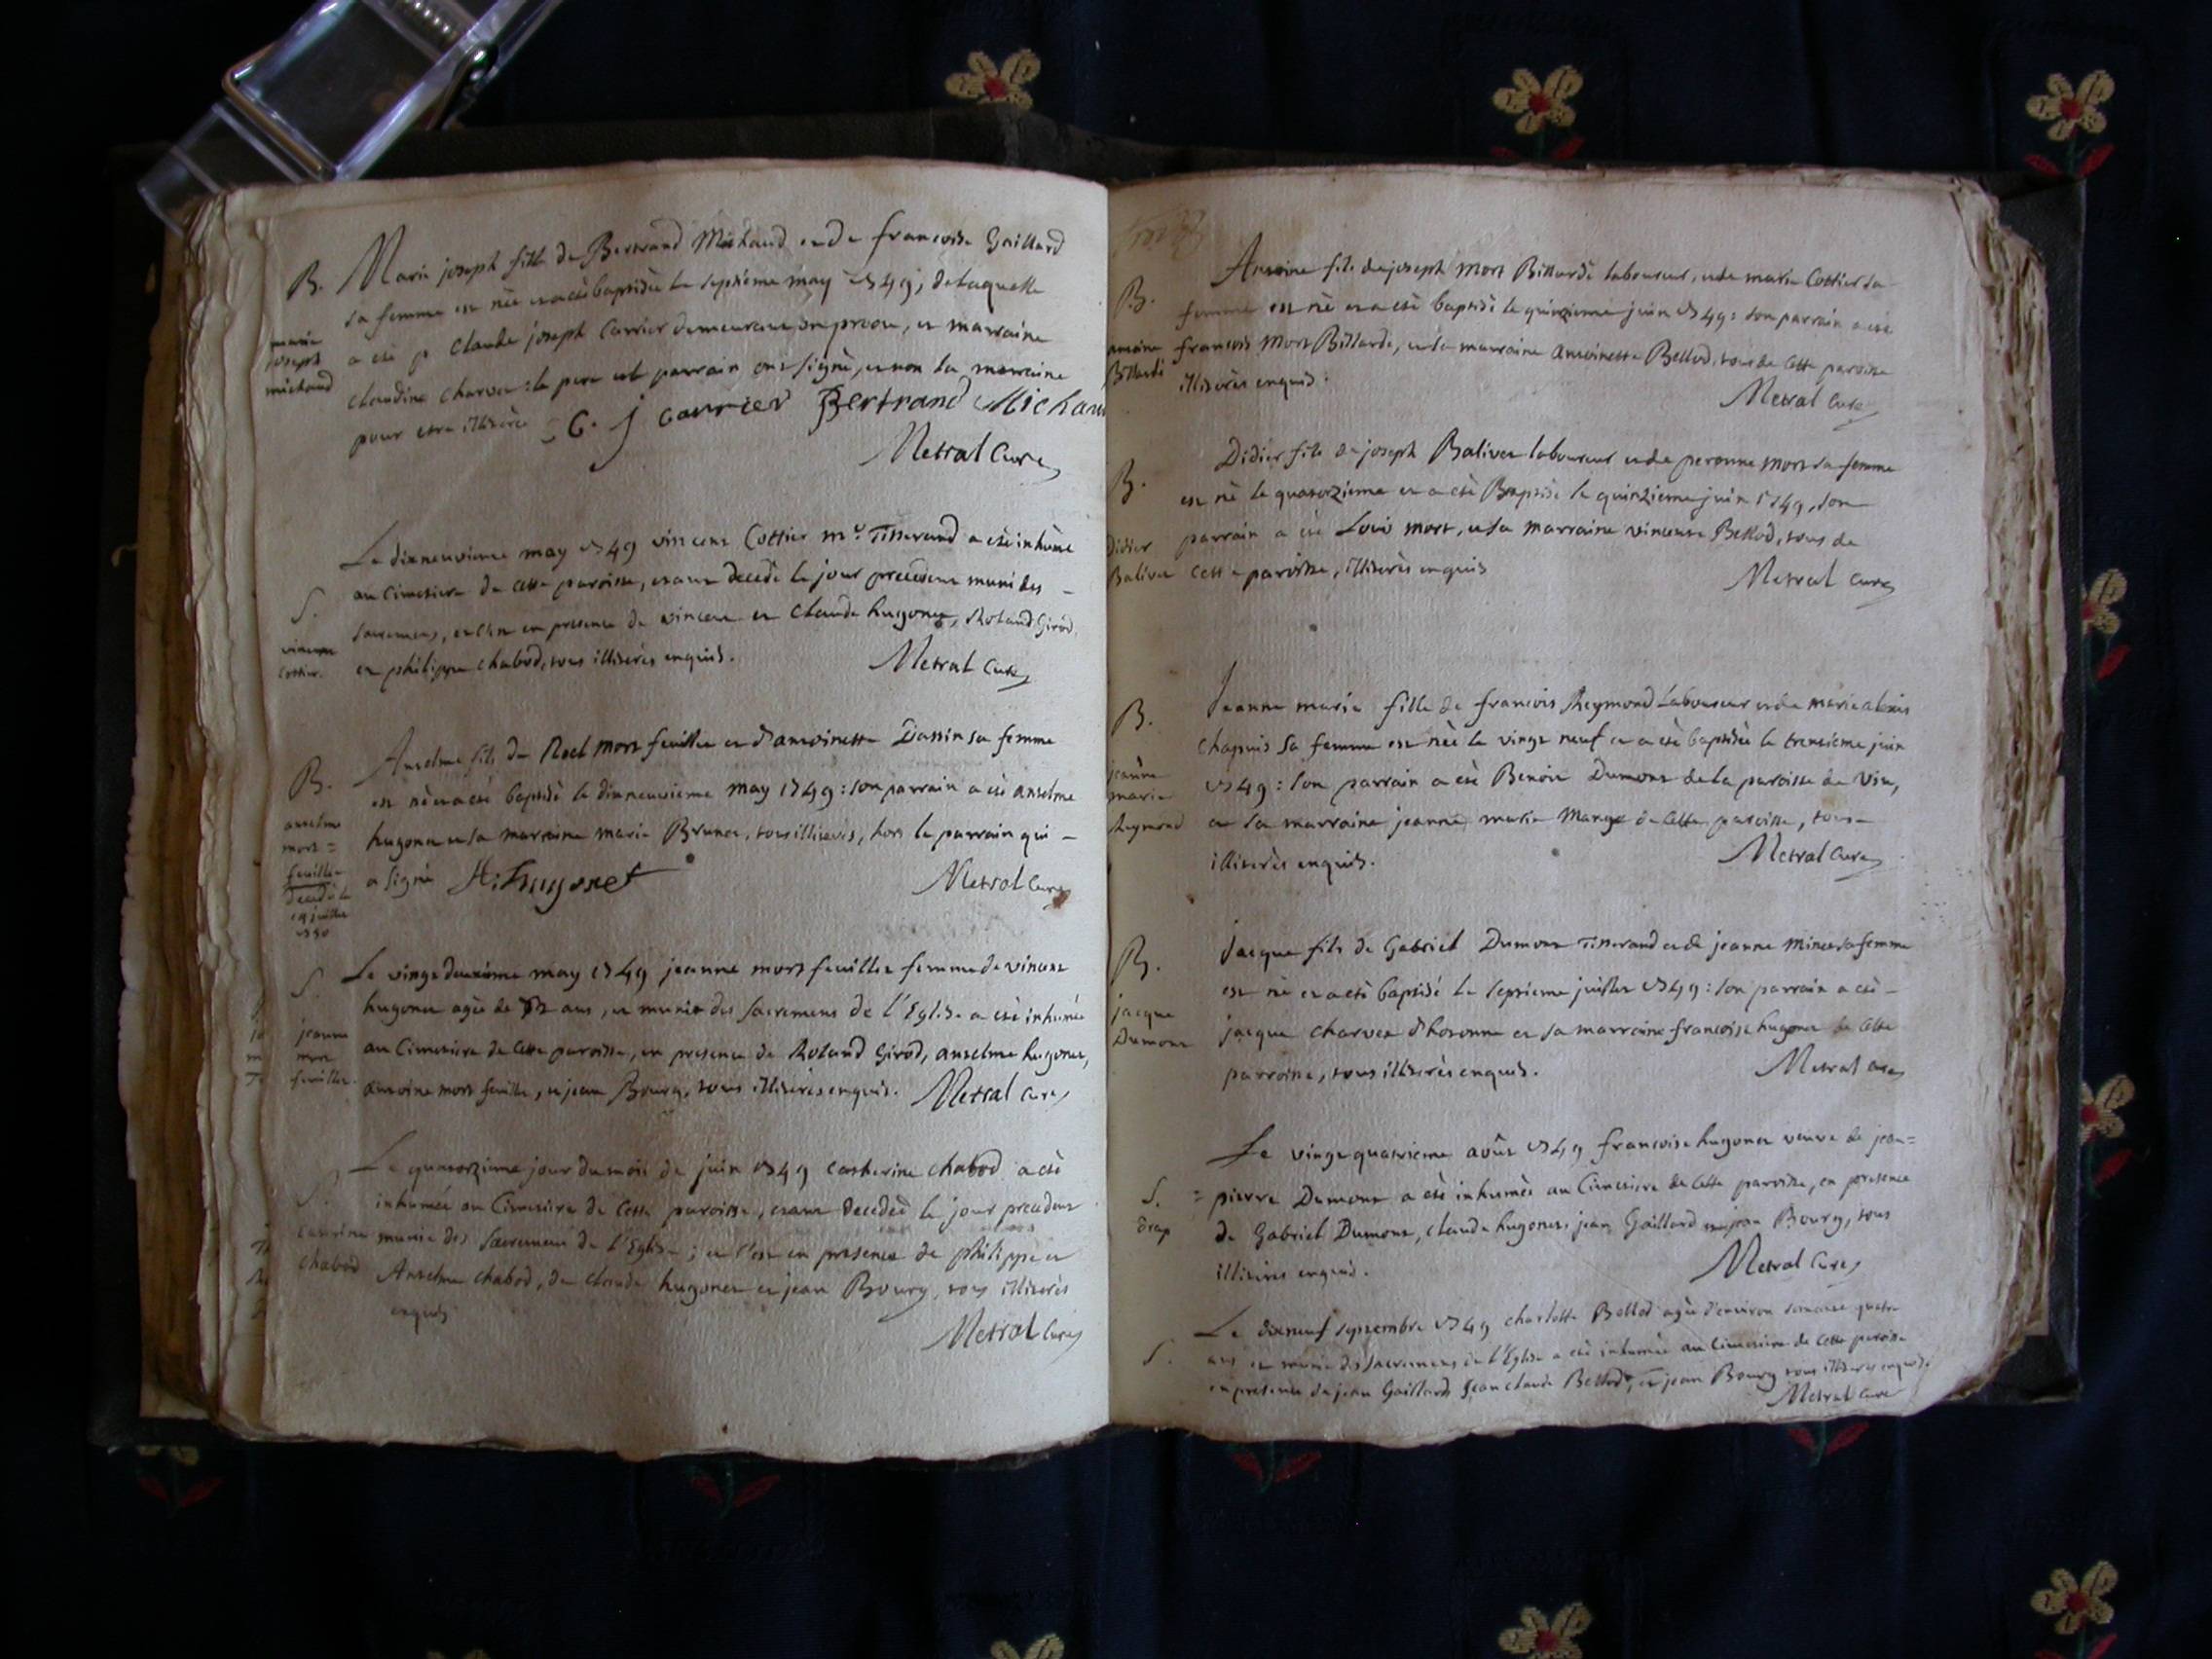 B. Marie joseph fille de Bertrand Michaud et de francoise Gaillard
sa femme est née et a été baptisée le septième may 1749, de laquelle
marie
joseph
michaud
a été p claude joseph Carrier demeurant et marraine
claudine Charvet: le pere et parrain ont signé, et non la marraine
pour etre illiterée C. j carrier Bertrand Michau
Metral Curé
Le dixneuvieme may 1749 vincent Cottier me Tisserand a été inhumé
S. au Cimetiere de cette paroisse, etant decedé le jour precedent muni des
sacremens, en presence de vincent et Claude hugonet, Roland Girod,
vincent
cottier.
et philippe chabod, tous illiterés enquis.
Metral Curé
Anselme fils de Noel mort feuillie et d'antoinette Dassin sa femme
B. est né et a été baptisé le dixneuvieme may 1749: son parrain a été anselme
anselme
mort=
feuillie
decedé le
19 juillet
1750
hugonet et sa marraine marie Brunet, tous illiterés, hors le parrain qui
a signé A: hugonet
Metral Curé
S. Le vingt deuxieme may 1749 jeanne mort feuillie femme de vincent
hugonet agée de ans, et munie des sacremens de l'Eglise a été inhumée
jeanne
mort
feuillie.
au Cimetiere de cette paroisse, en presence de Roland Girod, anselme hugonet,
antoine mort feuille, et jean Bourg, tous illiterés enquis. Metral Curé
Le quatorzieme jour du mois de juin 1749 catherine chabod a été
S. inhumée au Cimetiere de cette paroisse, etant decedée le jour precedent
caterine
chabod
munie des sacremens de l'Eglise; et c'est en presence de philippe et
Anselme chabod, de claude hugonet et jean Bourg, tous illiterés
enquis
Metral Curé
Antoine fils de joseph Mort Billardé laboureur, et de marie Cottier sa
B. femme est né et a été baptisé le quinzieme juin 1749: son parrain a été
antoine
Billardé
francois Mort Billardé, et sa marraine antoinette Bellod, tous de cette paroisse
illiterés enquis.
Metral Curé
Didier fils de joseph Balivet laboureur et de peronne mort sa femme
B. est né le quatorzieme et a été Baptisé le quinzieme juin 1749, son
parrain a été Louis mort, et sa marraine vincente Bellod, tous de
Didier
Balivet
cette paroisse, illiterés enquis
Metral Curé
Jeanne marie fille de francois Reymond Laboureur et de marie alexis
B. Chapuis sa femme est née le vingt neuf et a été baptisée le trentieme juin
jeanne
marie
Reymond
1749: son parrain a été Benoit Dumont de la paroisse de Vin,
et sa marraine jeanne marie de cette paroisse, tous
illiterés enquis.
Metral Curé
Jacque fils de Gabriel Dumont Tisserand et de jeanne Minet sa femme
B. est né et a été baptisé le septieme juillet 1749: son parrain a été
jacque
Dumont
jacque Charvet d'hotonne et sa marraine francoise hugonet de cette
parroisse, tous illiterés enquis.
Metral Curé
Le vingt quatrieme août 1749 francoise hugonet veuve de jean=
S. =pierre Dumont a été inhumée au Cimetiere de cette paroisse, en presence
drap
de Gabriel Dumont, claude hugonet, jean Gaillard et jean Bourg, tous
illiterés enquis.
Metral Curé
Le dixneuf septembre 1749 charlotte Bellod agée d'environ soixante quatre
S. ans et munie des sacremens de l'Eglise a été inhumée au Cimetiere de cette paroisse
en presence de jean Gaillard, Jean claude Bellod, et jean Bourg tous illiterés enquis.
Metral Curé